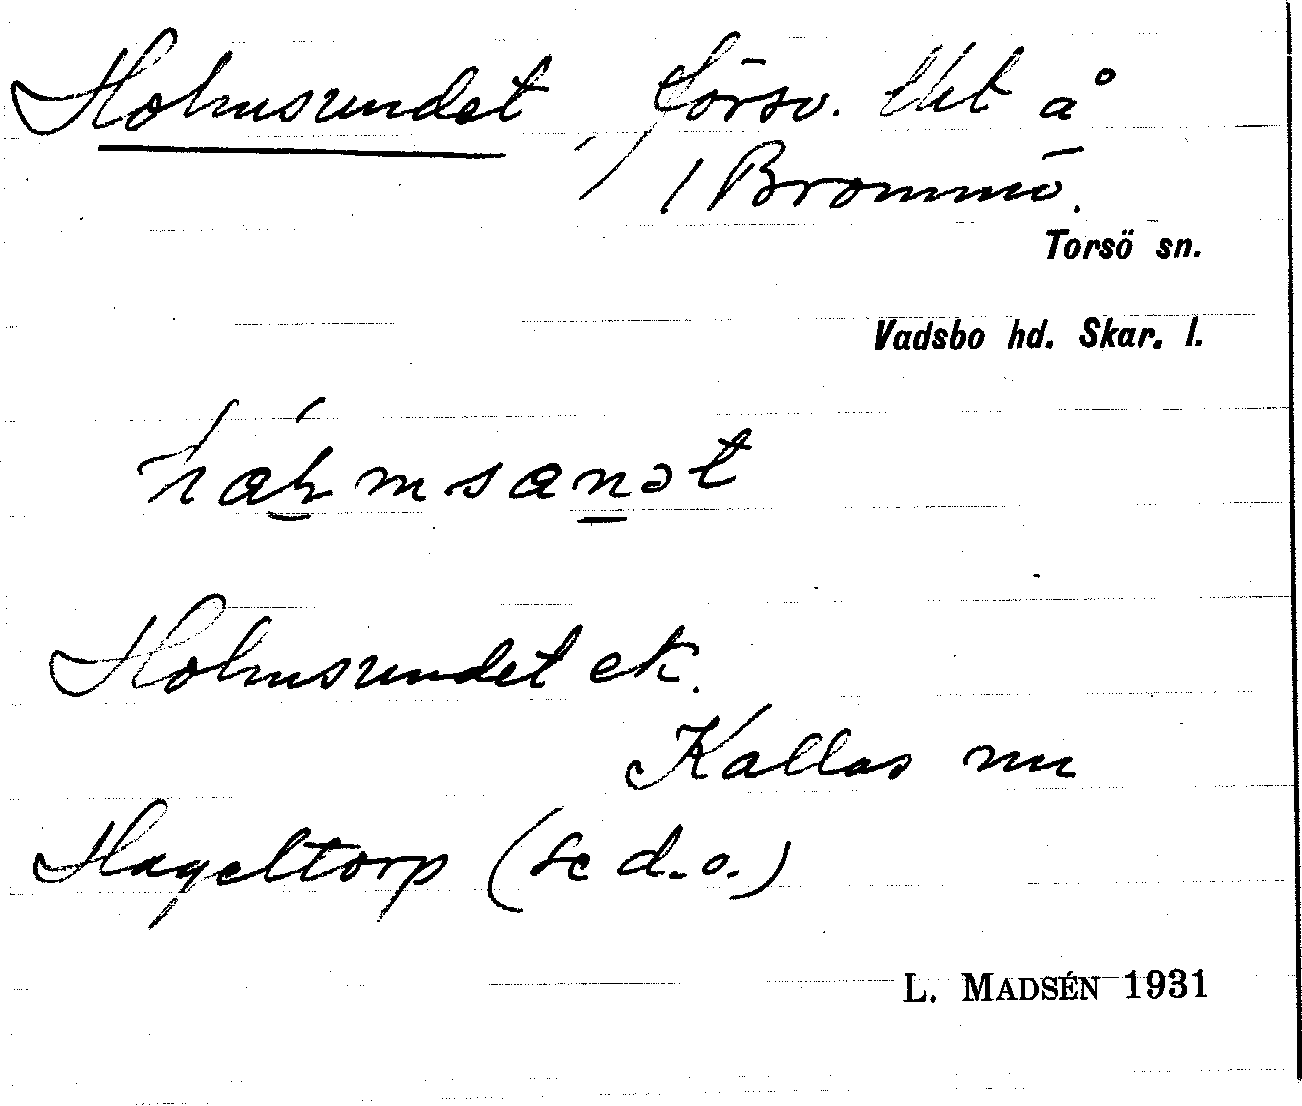 Holmsundet, försv. lht å
1 Brommö.
Torsö sn.
Vadsbo hd. Skar. l.
Holmsundet ek.
Kallas nu
Hageltorp (se d.o.)
L. MADSÉN 1931